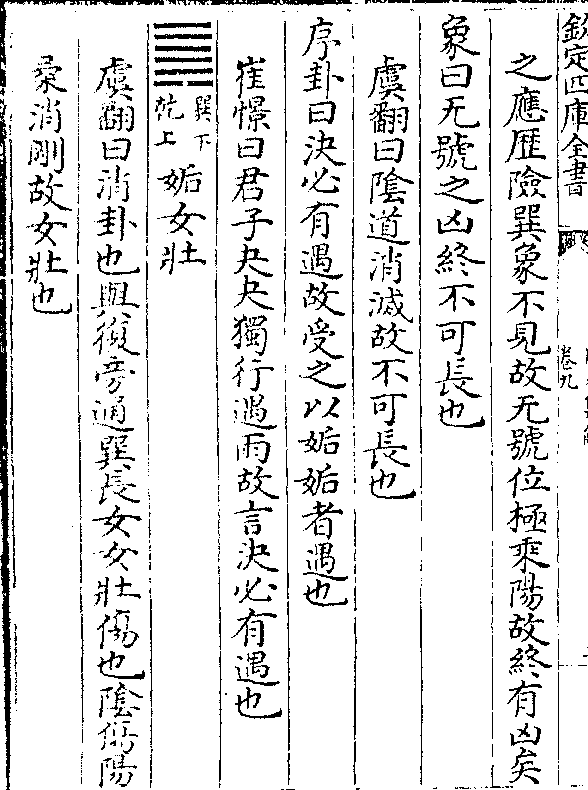 欽定四庫全書
卷九
之應歴險巽象不見故无號位極乘陽故終有凶矣
象曰无號之凶終不可長也
虞翻曰陰道消滅故不可長也
序卦曰決必有遇故受之以姤姤者遇也
崔憬曰君子夬夬獨行遇雨故言決必有遇也
䷫
巽下
乾上
姤女壯
虞翻曰消卦也與復旁通巽長女女壯傷也陰傷陽
柔消剛故女壯也